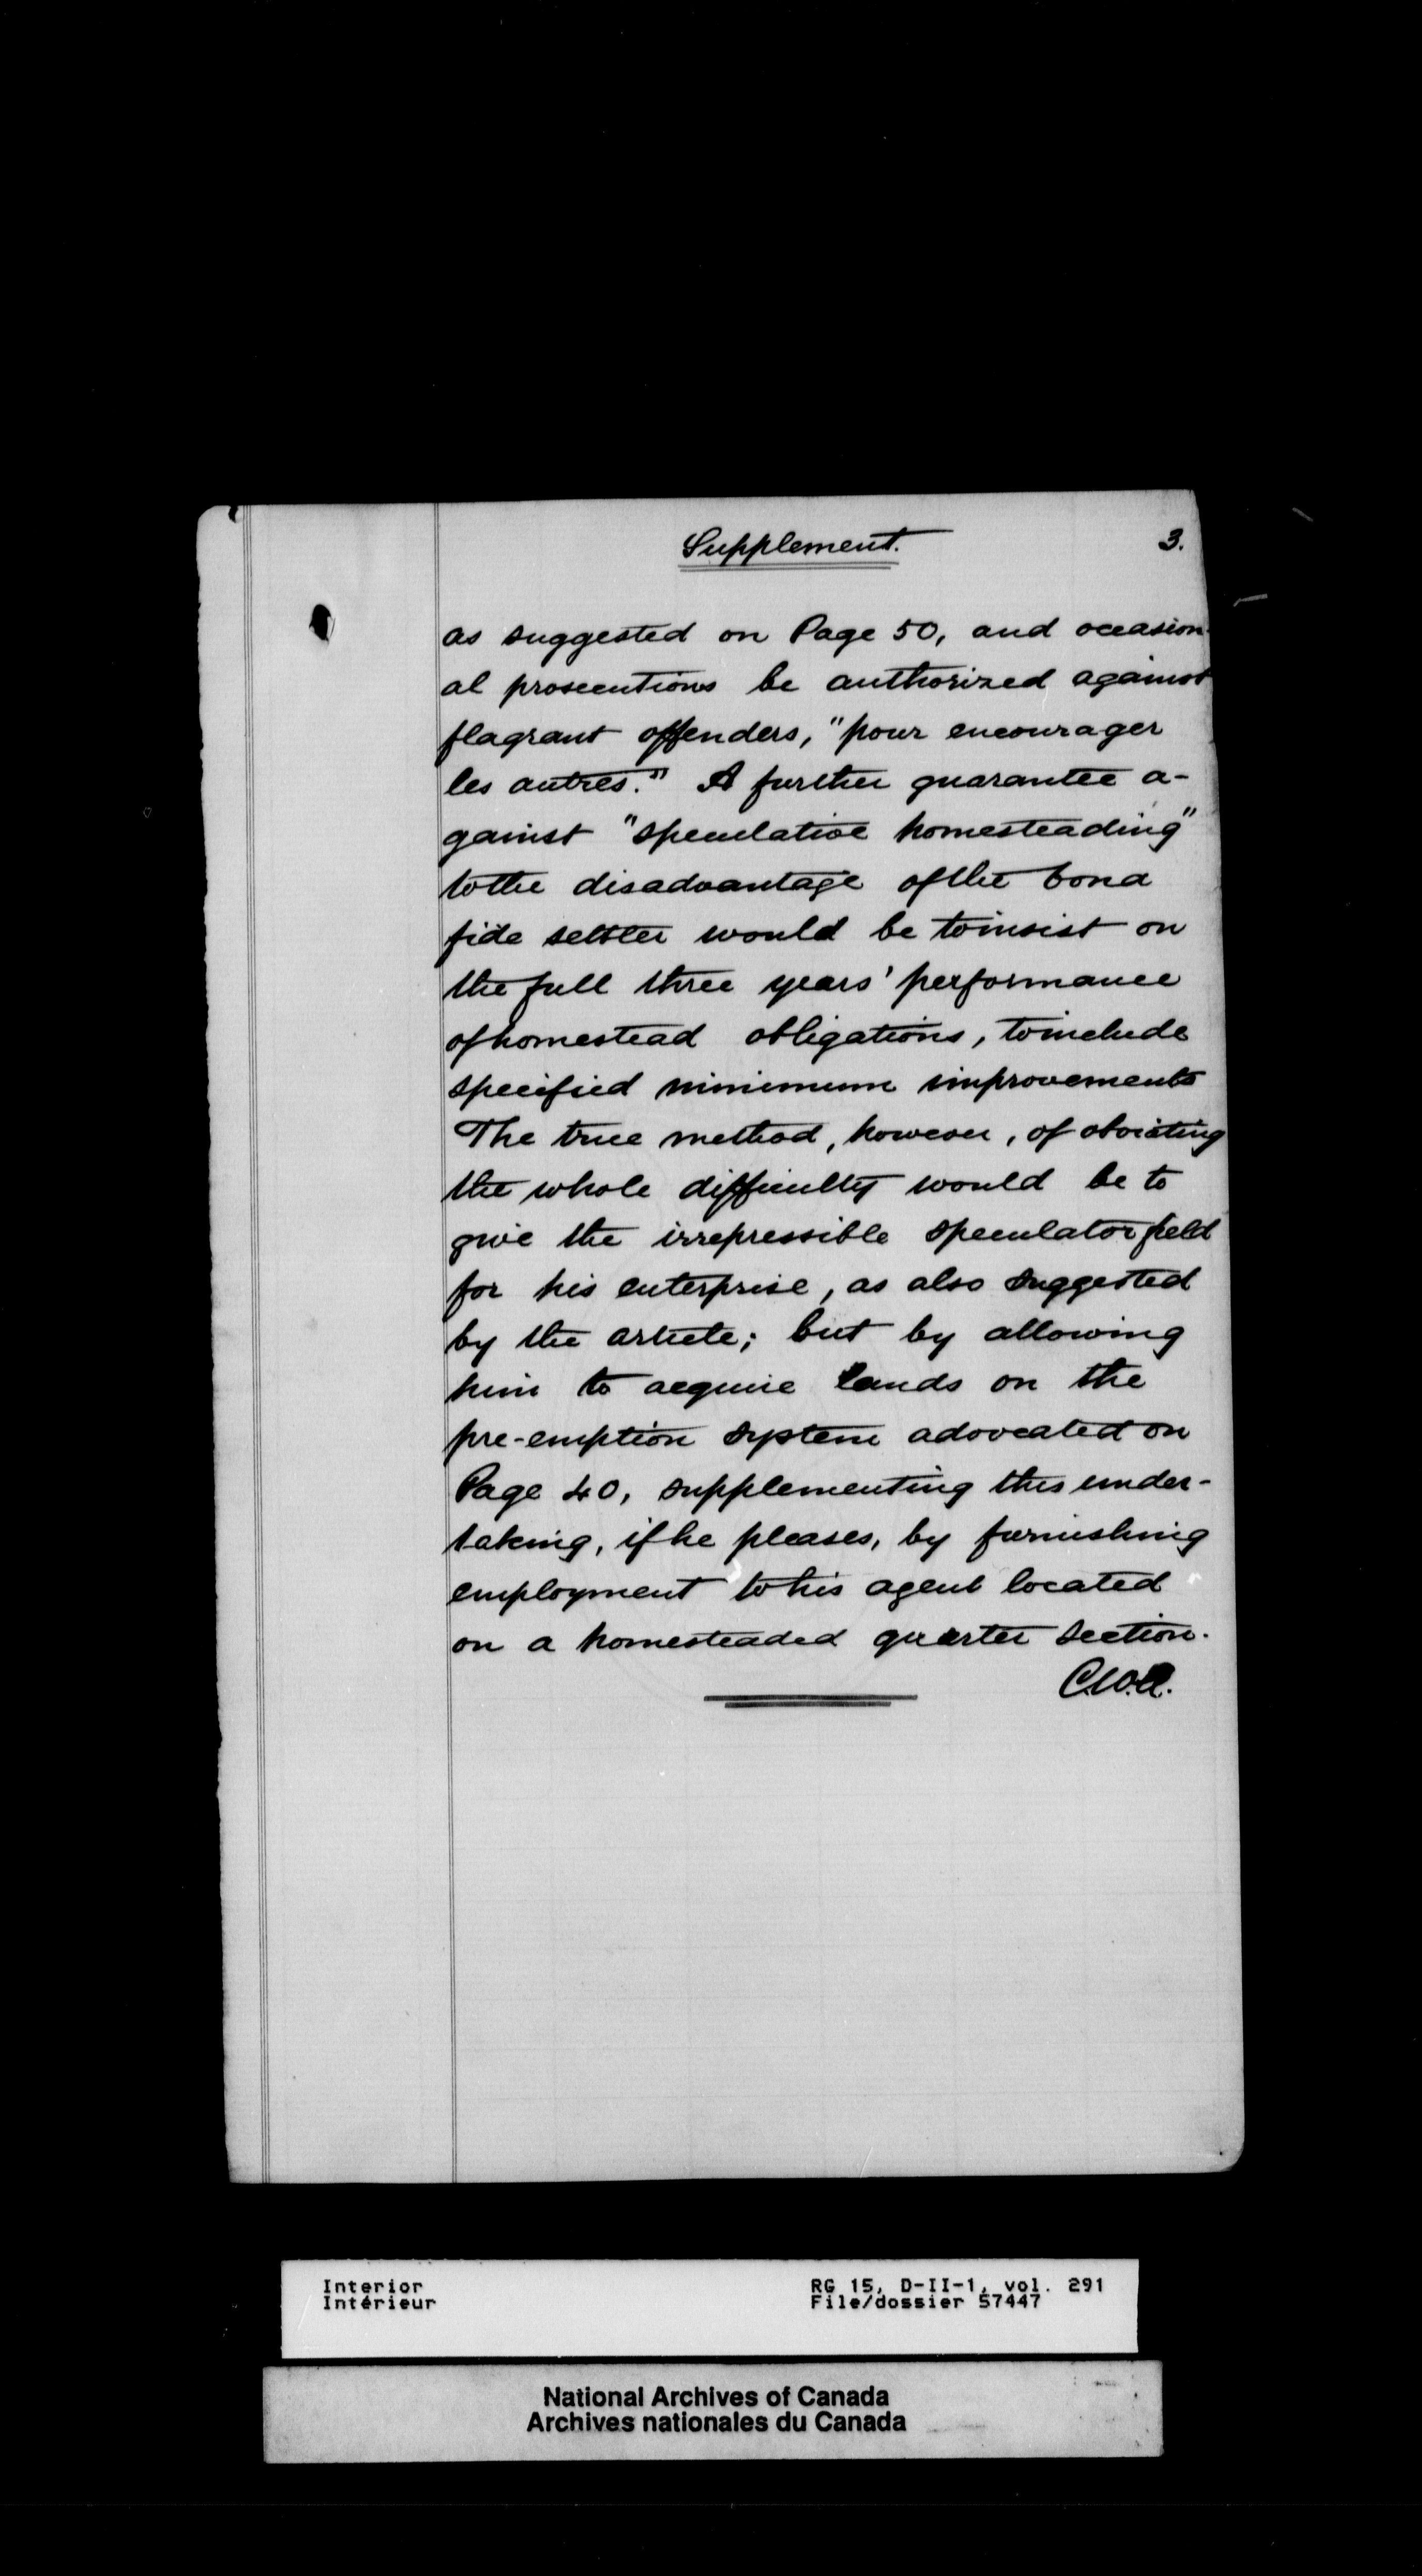 Supplement.
3.
as suggested on Page 50, and occasion-
al prosecutions be authorized against
flagrant offenders, "pour encourager
les autres." A further guarantee a-
gainst "speculative homesteading"
to the disadvantage of the bona
fide settler would be to insist on
the full three years' performance
of homestead obligations, to include
specified minimum improvements
The true method, however, of obviating
the whole difficulty would be to
give the irrepressible speculator field
for his enterprise, as also suggested
by the article; but by allowing
him to acquire lands on the
pre-emption system advocated on
Page 40, supplementing this under-
taking, if he pleases, by furnishing
employment to his agent located
on a homesteaded quarter section.
Interior
Intérieur
RG 15, D-II-1, vol. 291
File/dossier 57447
National Archives of Canada
Archives nationales du Canada